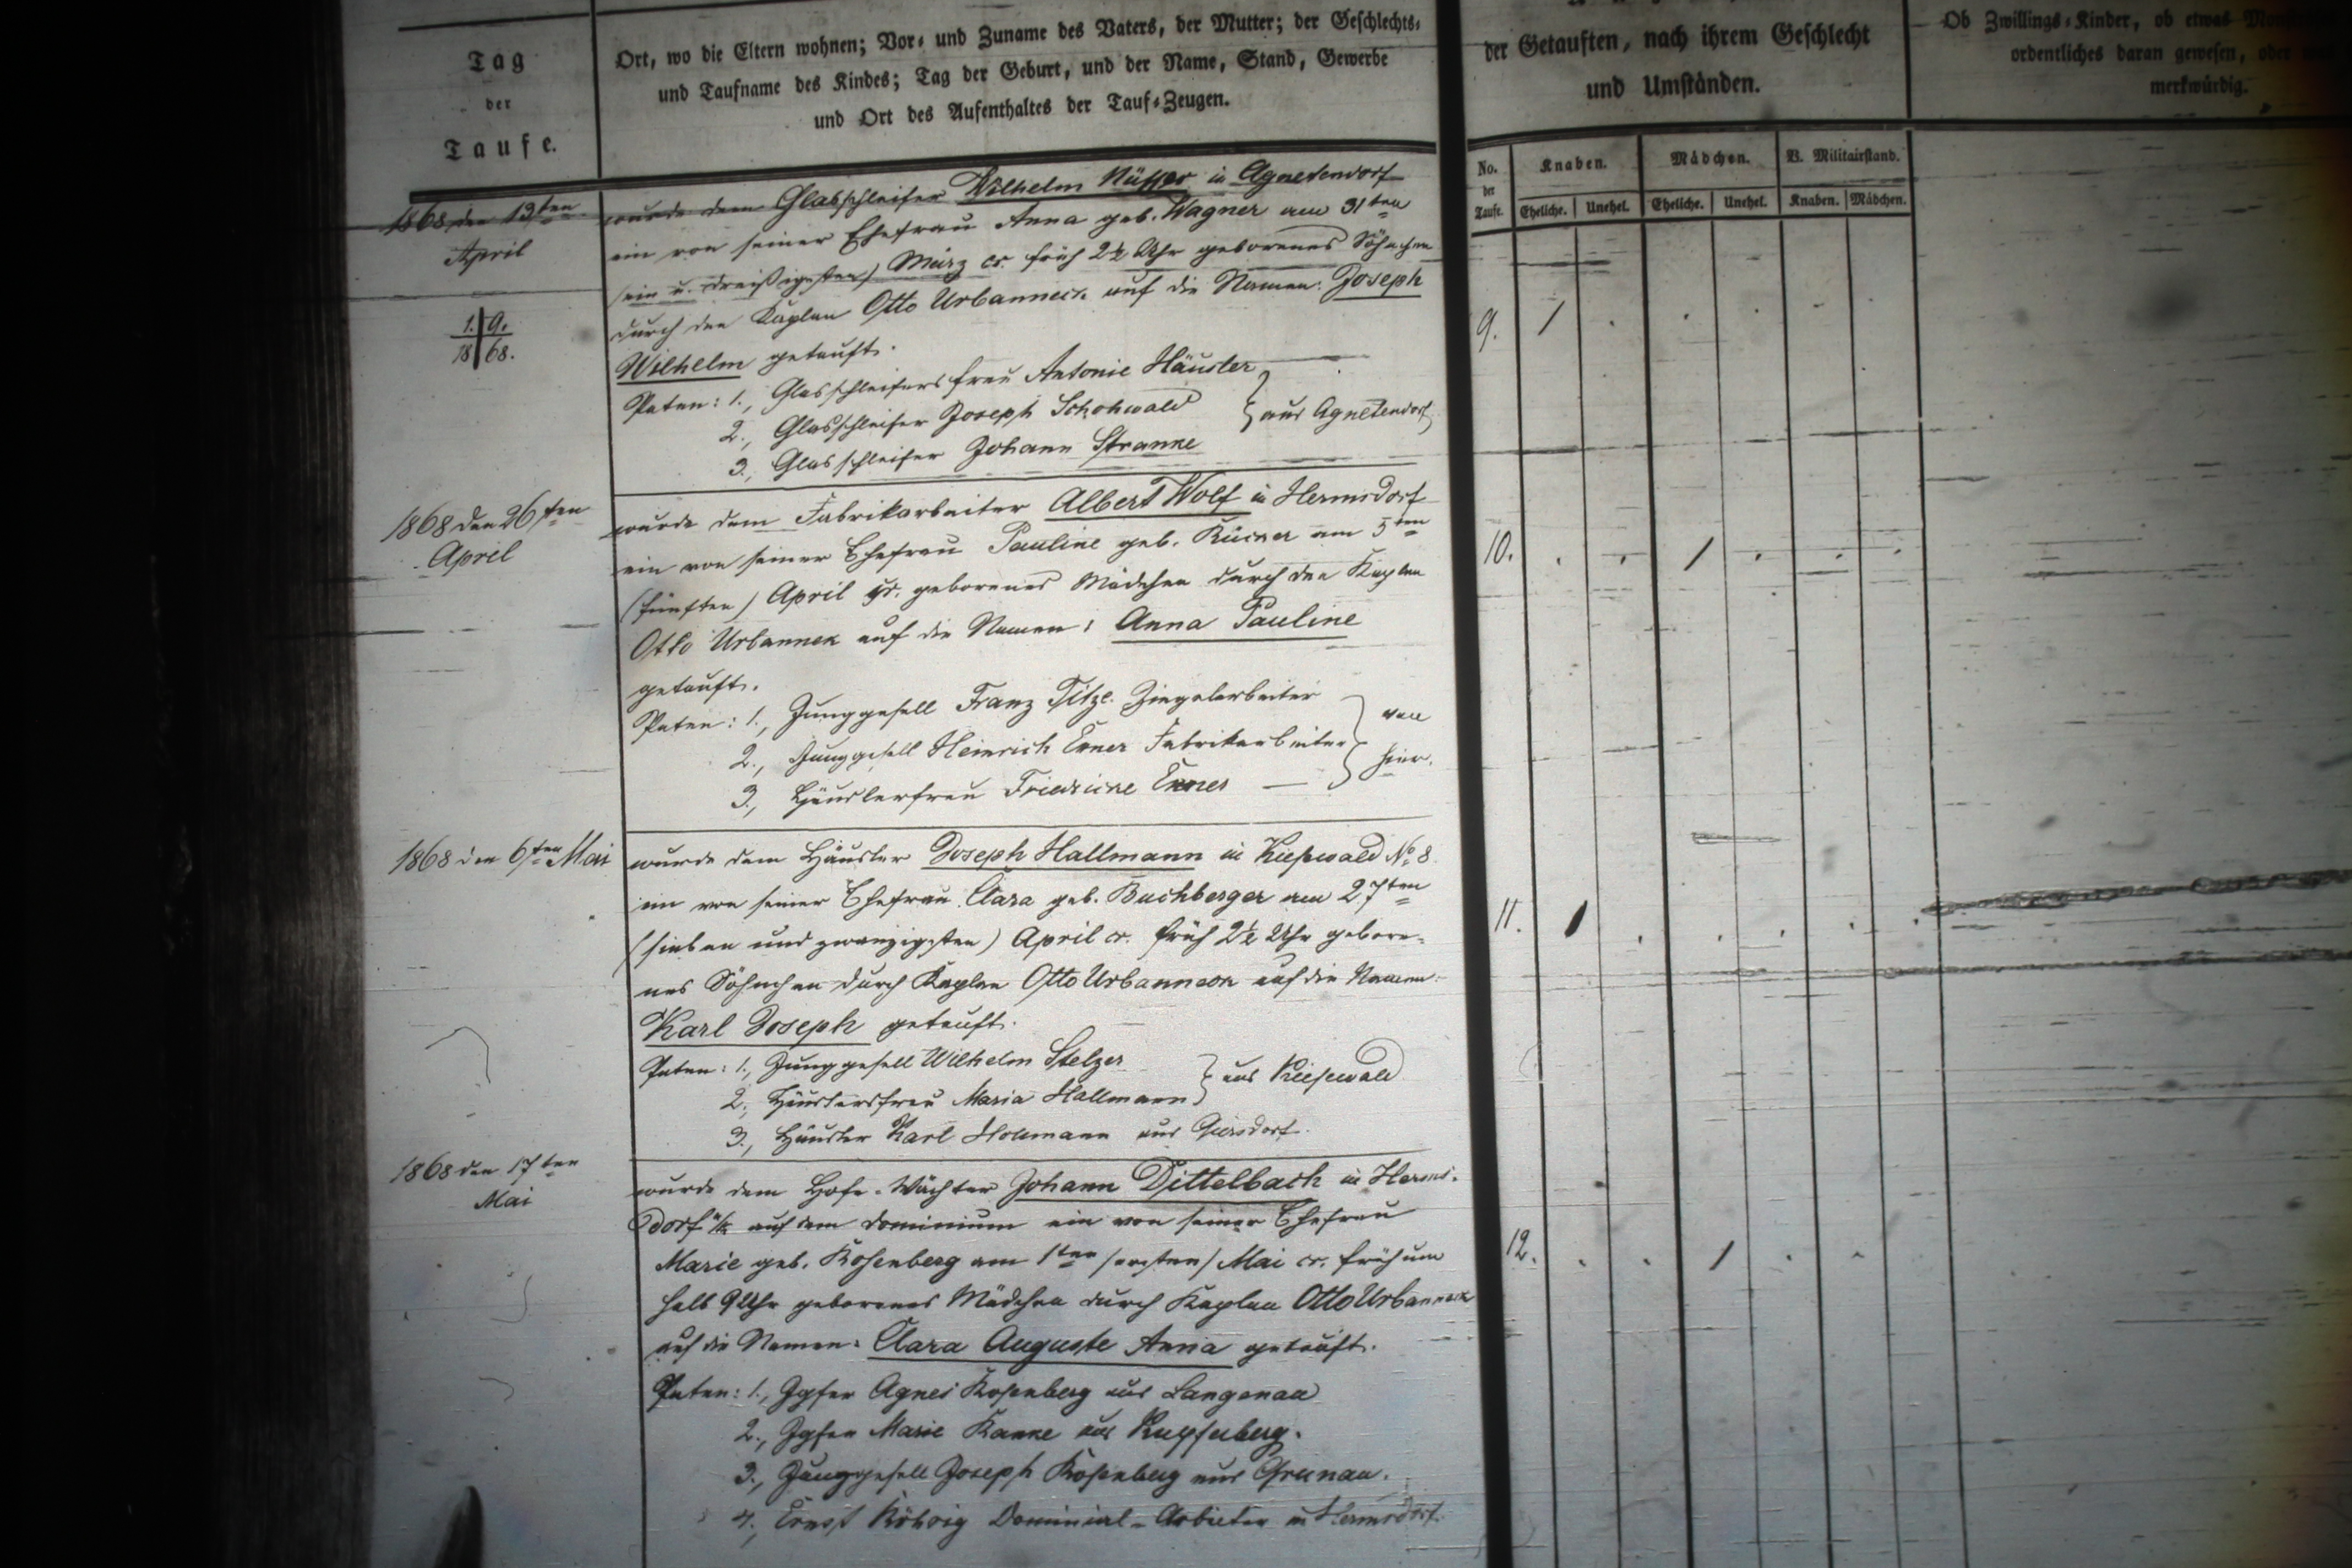 Tag
der
Taufe.
Ort, wo die Eltern wohnen; Vor- und Zuname des Vaters, der Mutter; der Geschlechts-
und Taufname des Kindes; Tag der Geburt, und der Name, Stand, Gewerbe
und Ort des Aufenthaltes der Tauf-Zeugen.
der Getauften, nach ihrem Geschlecht
und Umständen.
Ob Zwillings-Kinder, ob etwas
ordentliches daran gewesen, oder
merkwürdig.
No. der Taufe.
Knaben.
Mädchen.
V. Militairstand.
Eheliche. Unehel. Eheliche. Unehel. Knaben. Mädchen.
1868 den 13ten
April
1. 9.
18 68.
wurde dem Glasschleifer Wilhelm in Agnetendorf
ein von seiner Ehefrau Anna geb. Wagner am 31ten
(ein u. dreißigsten) März cr. früh 2½ Uhr geborenes Söhnchen
durch den Kaplan Otto Urbanneck auf die Namen: Joseph
Wilhelm getauft.
Paten: 1., Glasschleifersfrau Antonie Häusler
2., Glasschleifer Joseph Schohwald
aus Agnetendorf
3., Glasschleifer Johann
9. 1
1868 den 26ten
April
wurde dem Fabrikarbeiter Albert Wolf in Hermsdorf
ein von seiner Ehefrau Pauline geb. am 5ten
(fünften) April geborenes Mädchen durch den Kaplan
Otto Urbannek auf die Namen: Anna Pauline
getauft.
Paten: 1., Junggesell Franz Titze Ziegelarbeiter
2., Junggesell Heinrich Exner Fabrikarbeiter
von hier.
3., Häuslerfrau Friedricke Exner
10. 1
1868 den 6ten Mai
wurde dem Häusler Joseph Hallmann in Kiesewald No. 8
ein von seiner Ehefrau Clara geb. Buchberger am 27ten
(sieben und zwanzigsten) April cr. früh 2½ Uhr gebore-
nes Söhnchen durch Kaplan Otto Urbanneck auf die Namen:
Karl Joseph getauft.
Paten: 1., Junggesell Wilhelm Stelzer
2., Häuslersfrau Maria Hallmann
aus Kiesewald
3., Häusler Karl aus Giersdorf.
11. 1
1868 den 17ten
Mai
wurde dem Hofe-Wächter Johann Dittelbach in Herms-
dorf u/k auf dem Dominium ein von seiner Ehefrau
Marie geb. Rosenberg am 1ten (ersten) Mai cr. früh um
halb 9 Uhr geborenes Mädchen durch Kaplan Otto Urbanneck
auf die Namen: Clara Auguste Anna getauft.
Paten: 1., Jgfer Agnes Rosenberg aus Langenau
2., Jgfer Marie aus Kupferberg.
3., Junggesell Joseph Rosenberg aus Grunau.
4., Ernst Röhrig Dominial-Arbeiter in Hermsdorf.
12. 1